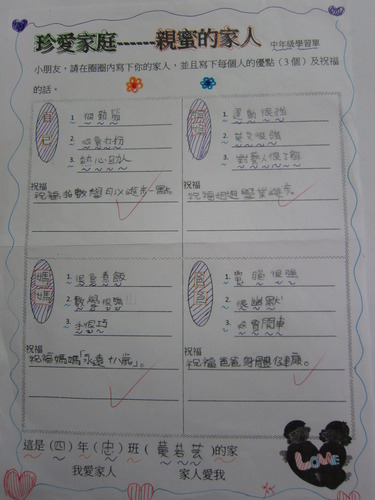 珍愛家庭------親蜜的家人 中年級學習單
小朋友，請在圈圈內寫下你的家人，並且寫下每個人的優點（3個）及祝福
的話。
自己
1.
2.
3. 熱心助人
祝福
祝福我數學可以進步一點。
1. 運動很強
2. 英文很強
3. 對藝人很了解
祝福
祝福姐姐學業進步。
媽媽
1. 很會煮飯
2. 數學很強
3. 手很巧
祝福
祝福媽媽「永遠十八歲」。
爸爸
1. 電腦很強
2. 很幽默
3. 很會開車
祝福
祝福爸爸身體健康。
LOVE
這是(四)年(忠)班(黃若芸)的家
我愛家人 家人愛我